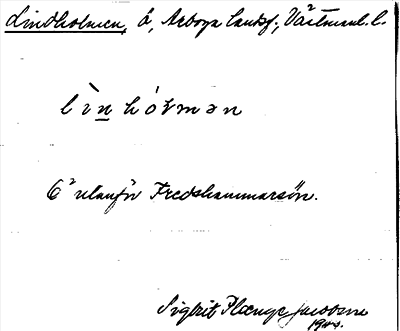 Lindholmen, ö, Arboga landsf., Västmanl. l.
lìnhólmən
Ö utanför Fredshammarsön.
Sigbrit Plænge Jacobson
1944.